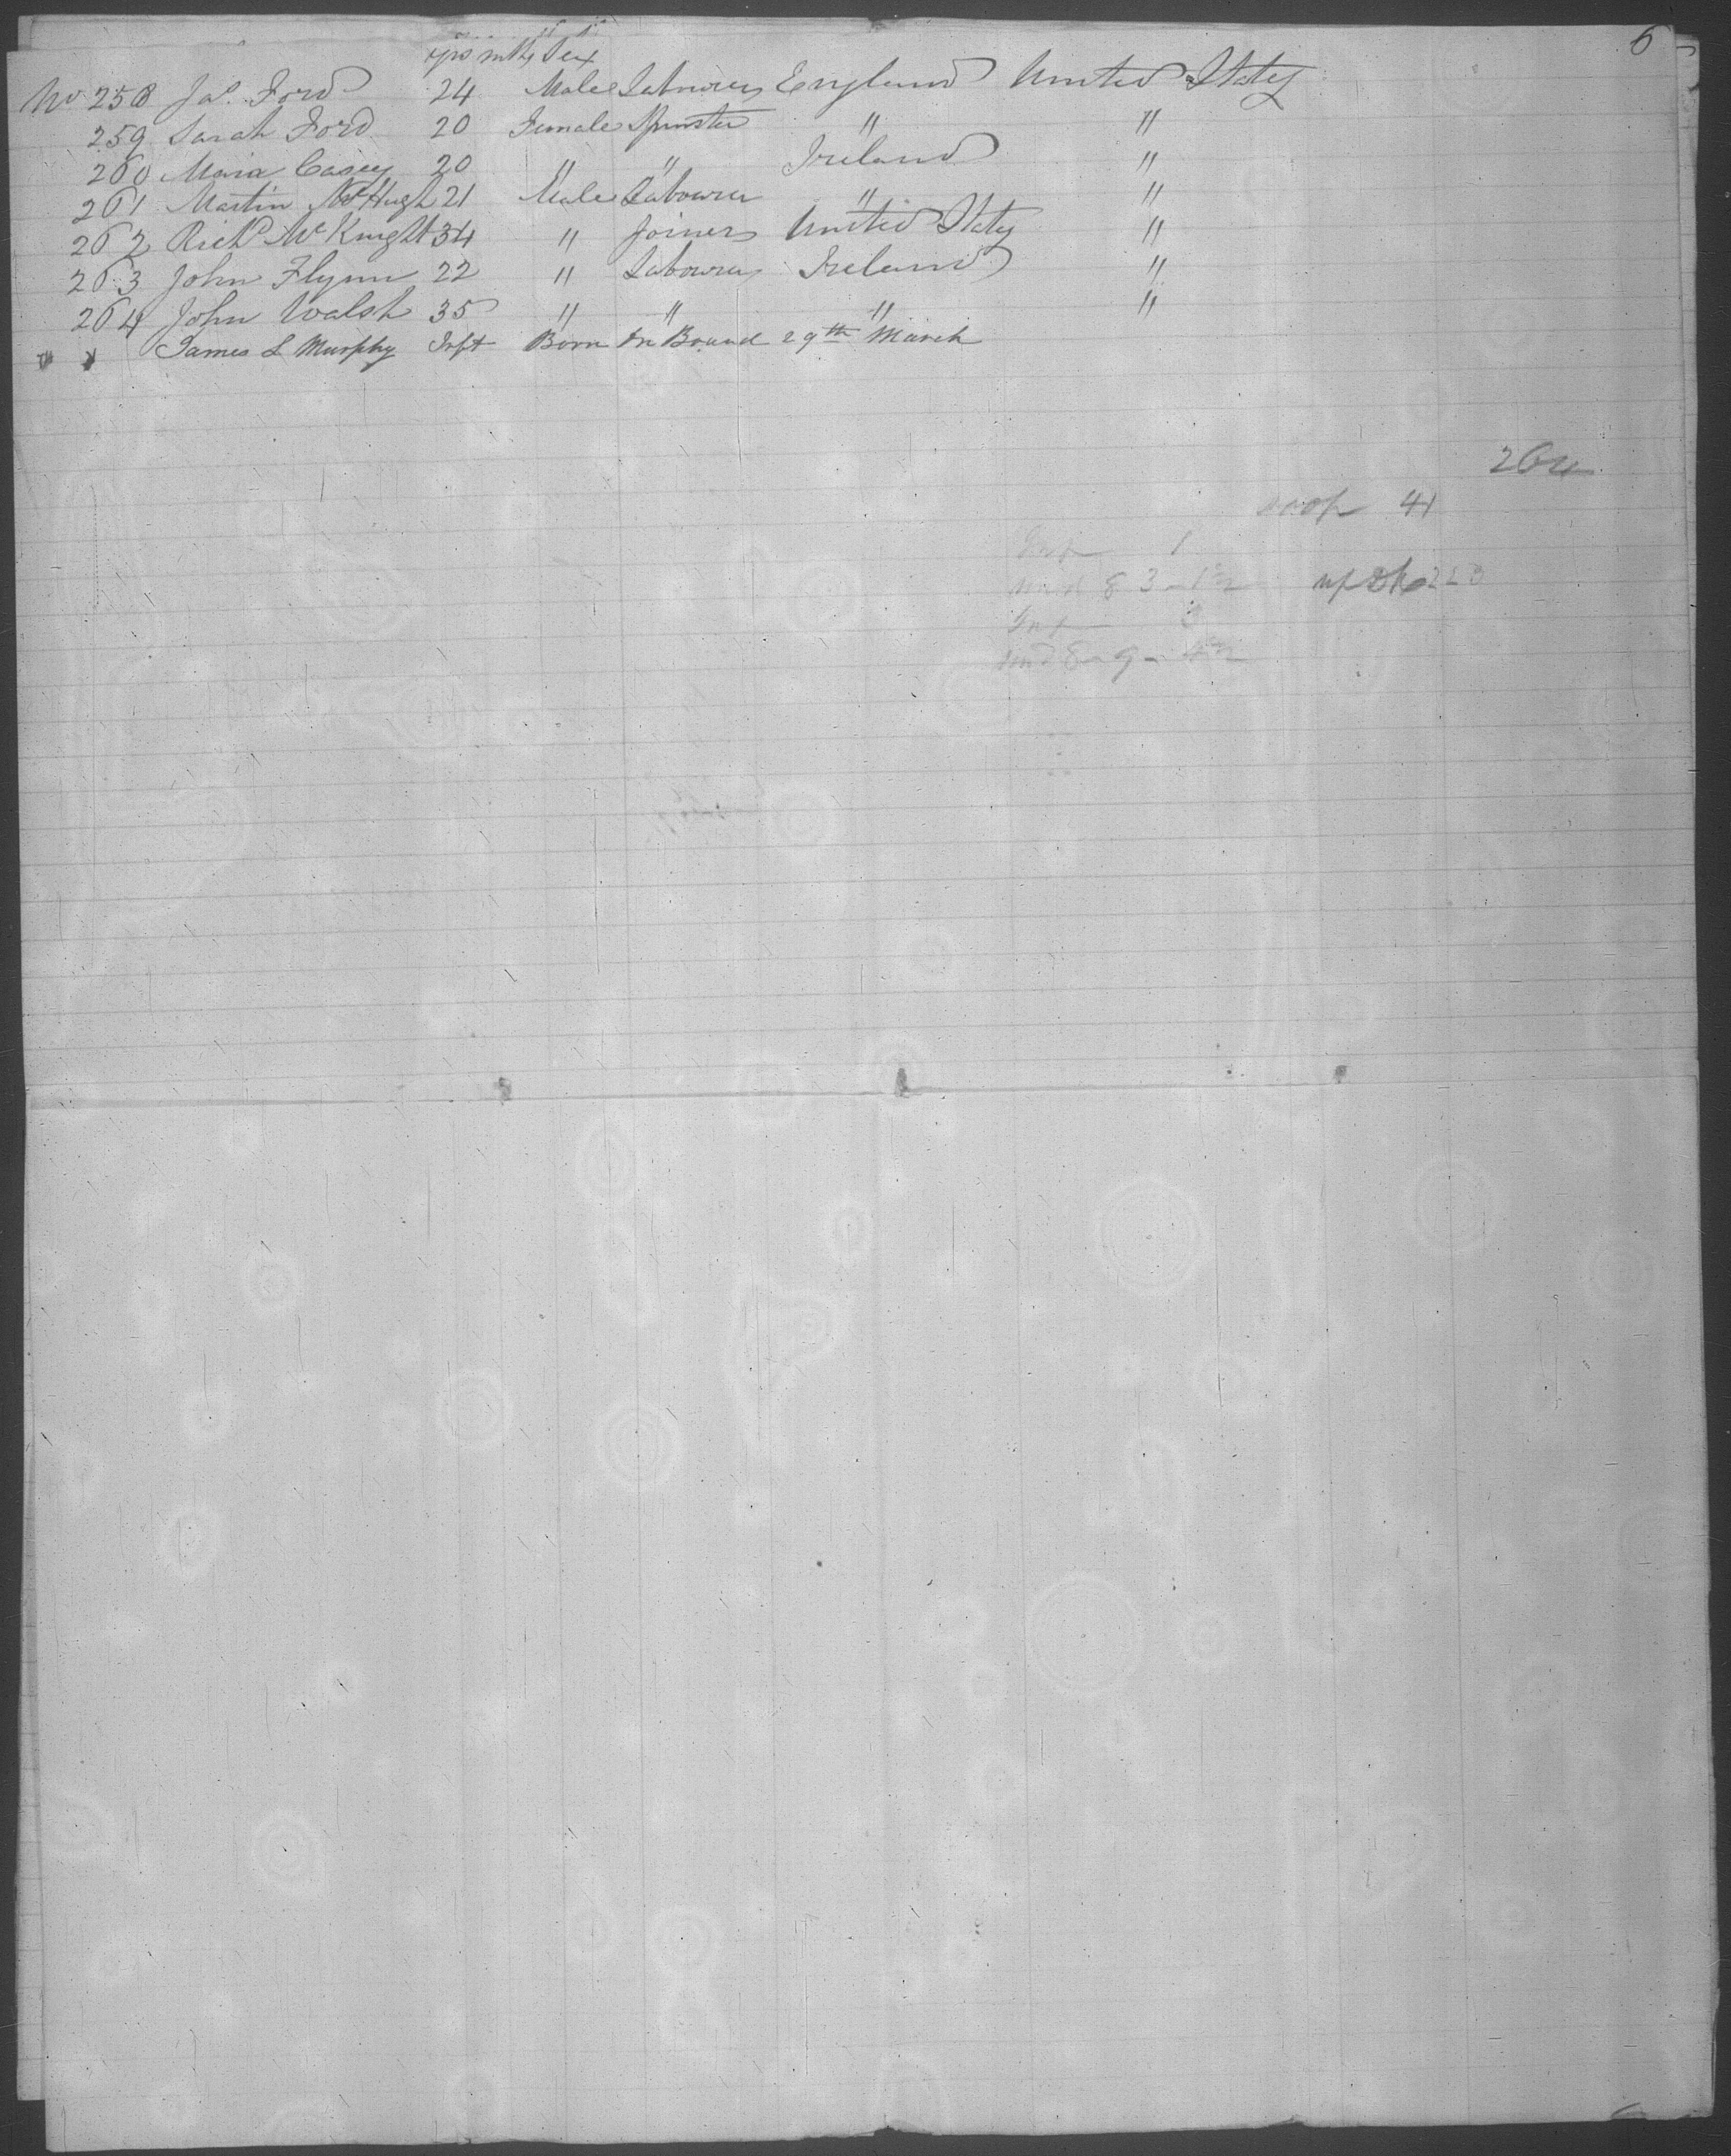 6
yrs mths Sex
No 258 Jas. Ford 24 Male Labourer England United States
259 Sarah Ford 20 Female Spinster " "
260 Maria Casey 20 " " Ireland "
261 Martin McHugh 21 Male Labourer " "
262 Richd McKnight 34 " Joiner United States "
263 John Flynn 22 " Labourer Ireland "
264 John Walsh 35 " " " "
James L Murphy Inft Born On Board 29th March
264
41
Inf 1
und 8 3 - 1½
Inf 3
und 8 - 9 - 4½